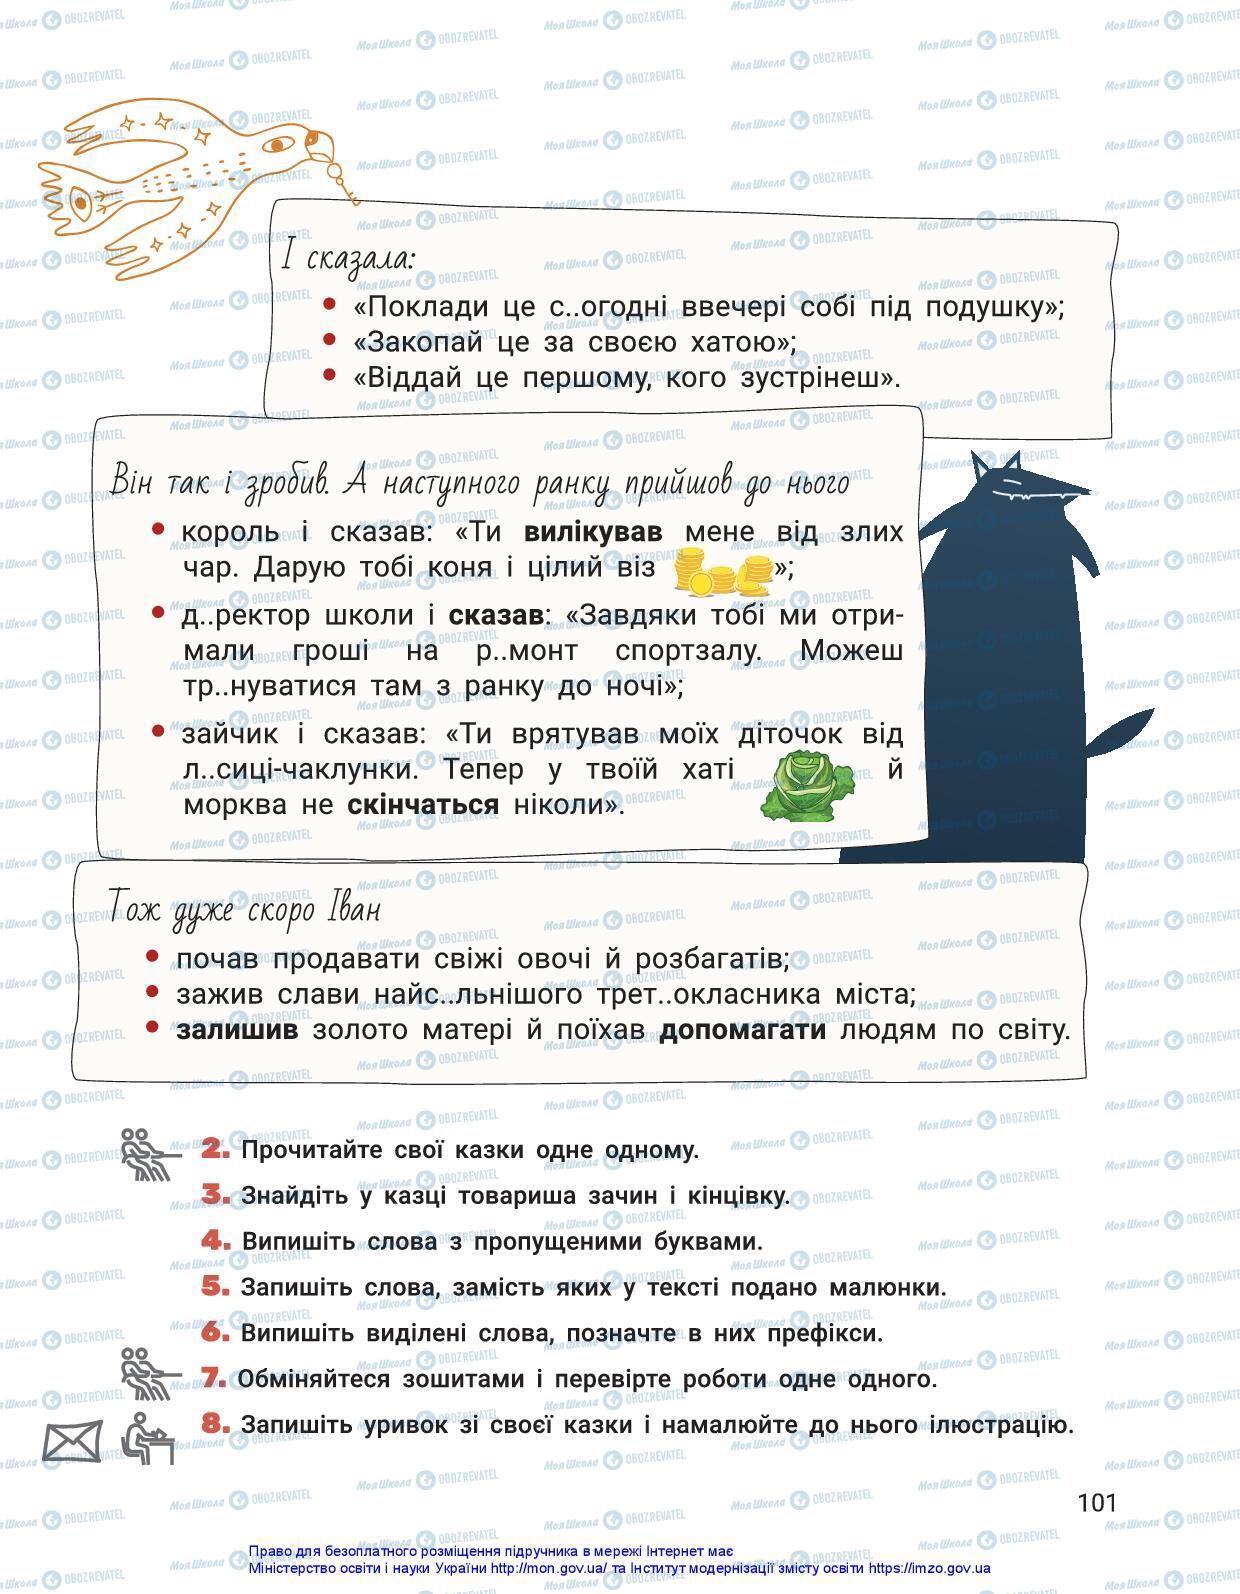 І сказала:
• «Поклади це с..огодні ввечері собі під подушку»;
• «Закопай це за своєю хатою»;
• «Віддай це першому, кого зустрінеш».
Він так і зробив. А наступного ранку прийшов до нього
• король і сказав: «Ти вилікував мене від злих
чар. Дарую тобі коня і цілий віз »;
• д..ректор школи і сказав: «Завдяки тобі ми отри-
мали гроші на р..монт спортзалу. Можеш
тр..нуватися там з ранку до ночі»;
• зайчик і сказав: «Ти врятував моїх діточок від
л..сиці-чаклунки. Тепер у твоїй хаті й
морква не скінчаться ніколи».
Тож дуже скоро Іван
• почав продавати свіжі овочі й розбагатів;
• зажив слави найс..льнішого трет..окласника міста;
• залишив золото матері й поїхав допомагати людям по світу.
2. Прочитайте свої казки одне одному.
3. Знайдіть у казці товариша зачин і кінцівку.
4. Випишіть слова з пропущеними буквами.
5. Запишіть слова, замість яких у тексті подано малюнки.
6. Випишіть виділені слова, позначте в них префікси.
7. Обміняйтеся зошитами і перевірте роботи одне одного.
8. Запишіть уривок зі своєї казки і намалюйте до нього ілюстрацію.
101
Право для безоплатного розміщення підручника в мережі Інтернет має
Міністерство освіти і науки України http://mon.gov.ua/ та Інститут модернізації змісту освіти https://imzo.gov.ua
Моя Школа OBOZREVATEL